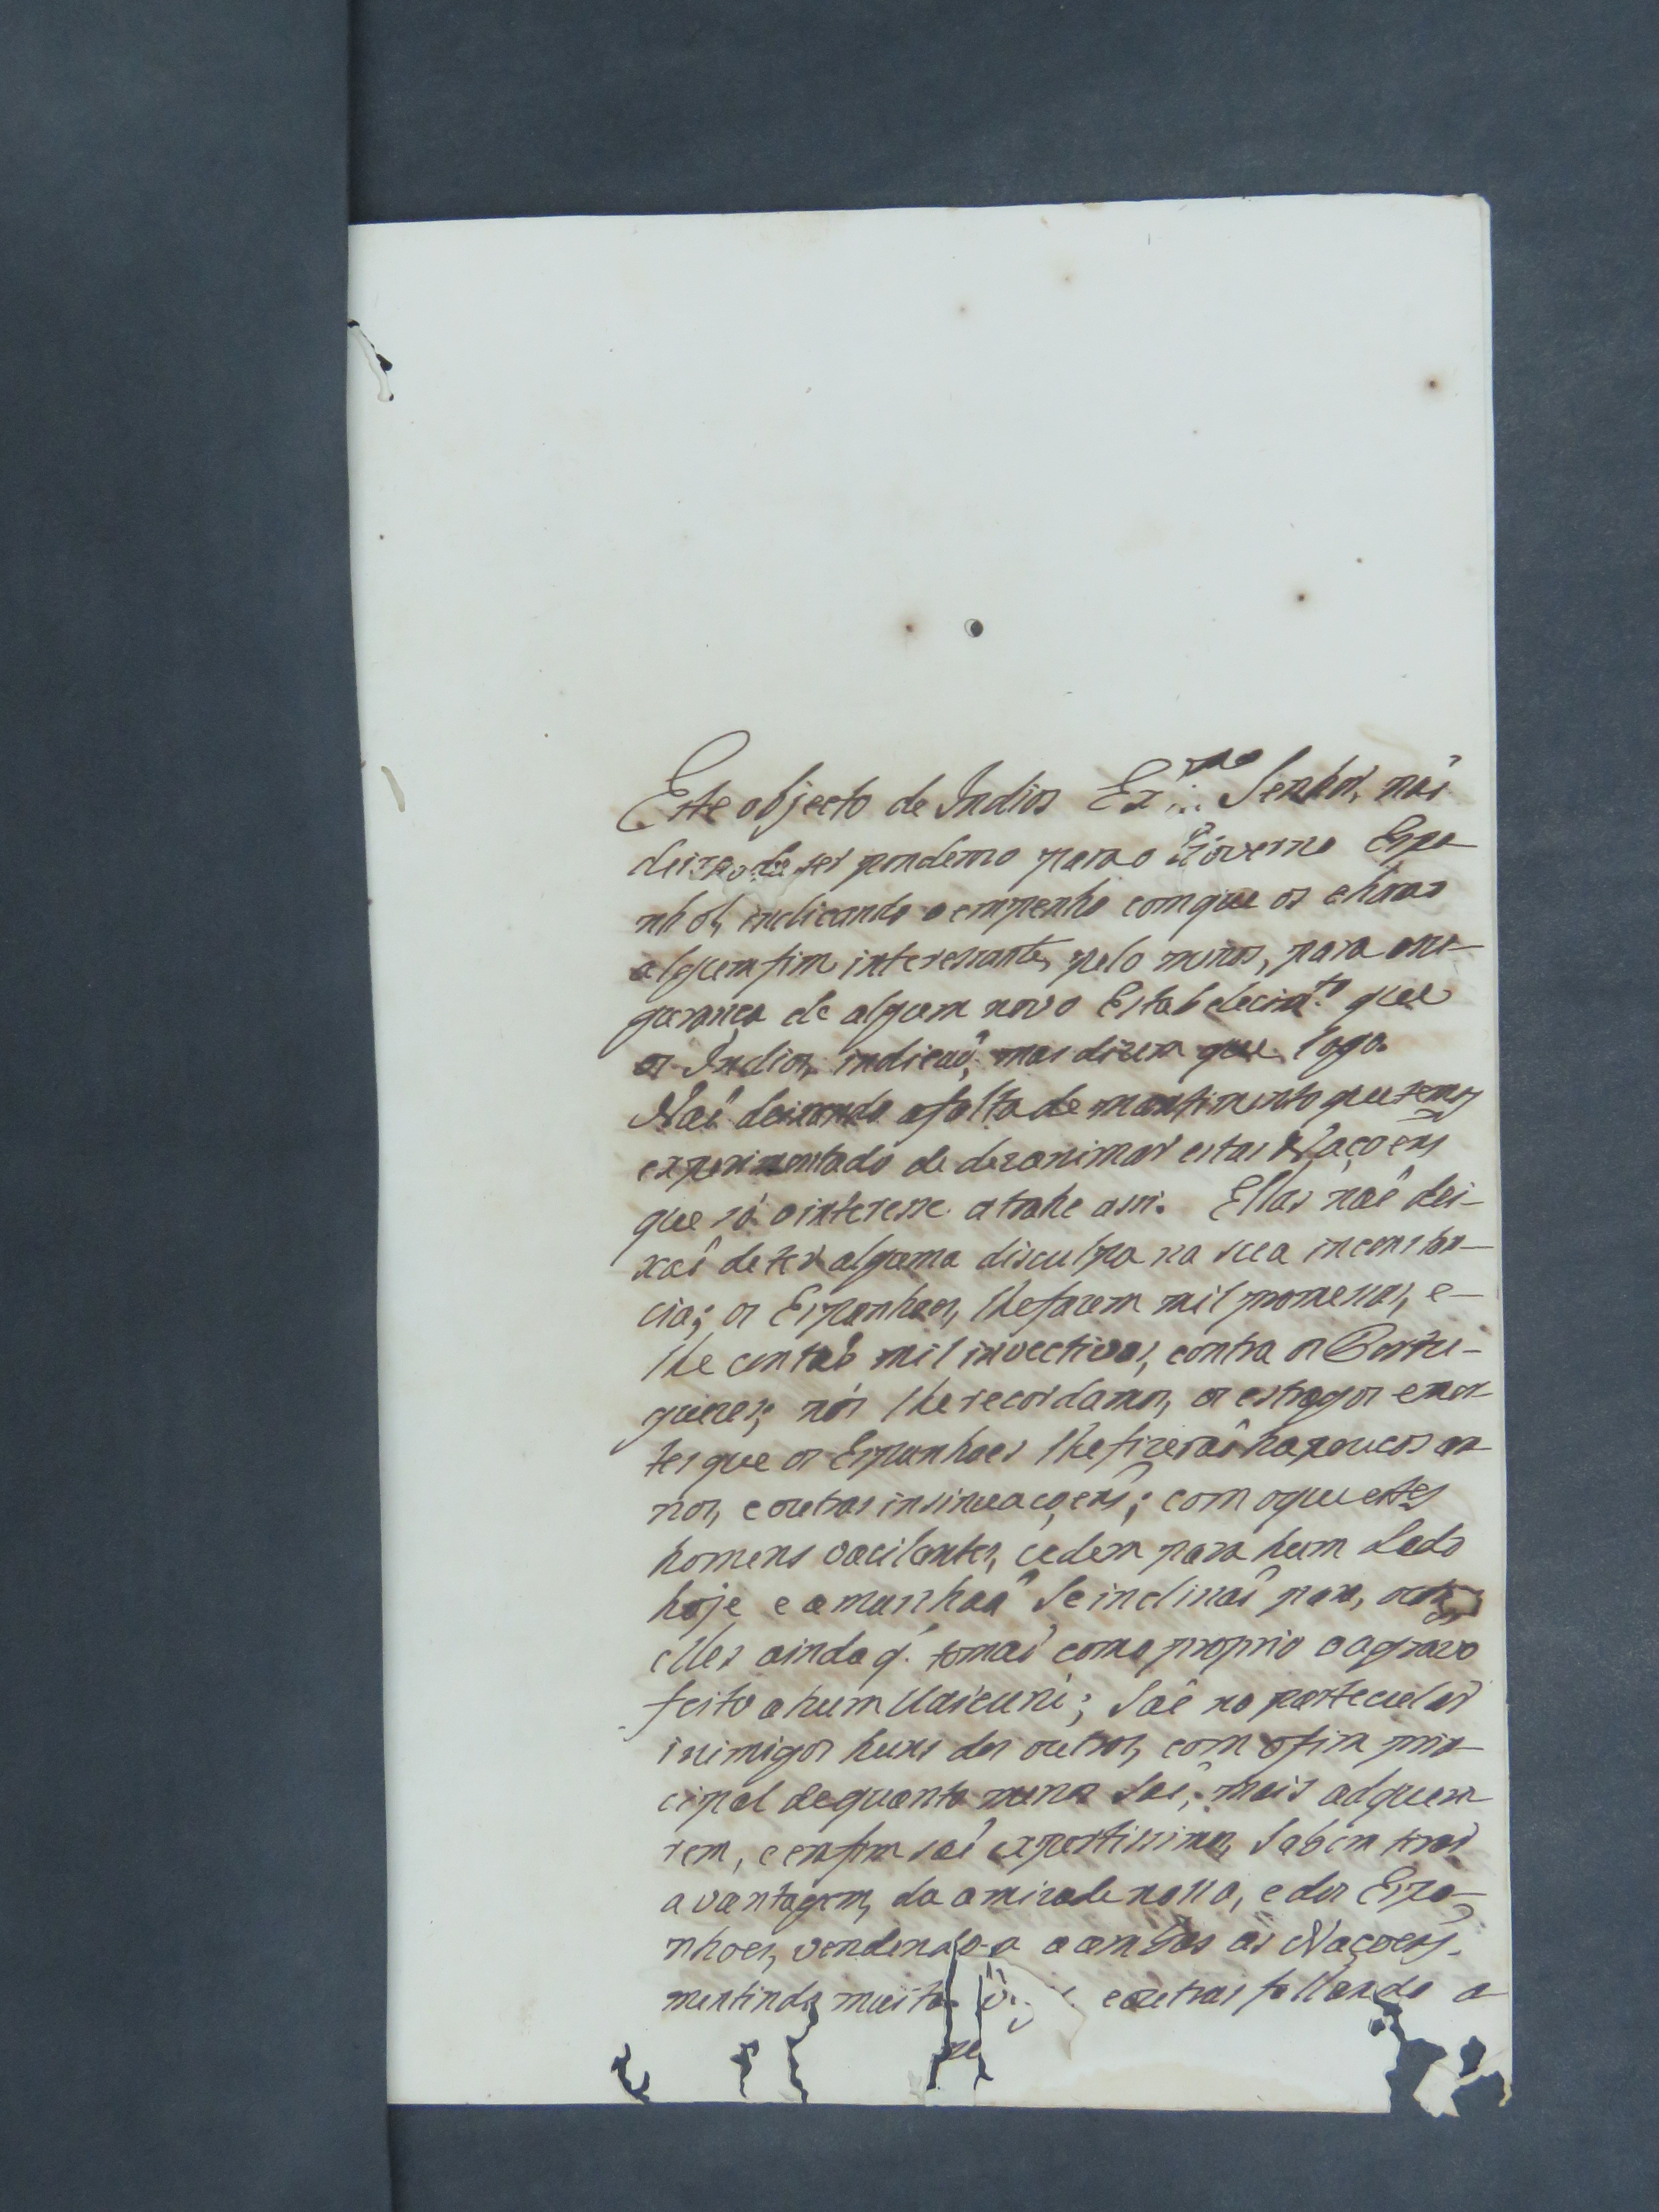 Este objecto de Indios Ex.mo Senhor, naõ
deixa de ser ponderozo para o Governo Espa-
nhol, indicando o empenho com que os chama
algum fim interessante, pelo menos, para a se-
gurança de algum novo Estabelecim.to que
os Indios, indicaõ, mas dizem que logo.
Naõ deixando a falta de mantimento que temos
experimentado de dezanimar estas Naçoens
que só o interesse atrahe asi. Ellas naõ dei-
xaõ de ter alguma disculpa na sua inconstan-
cia; os Espanhoes, lhe fazem mil promessas, e-
lhe contaõ mil invectivas, contra os Portu-
guezes; nós lhe recordamos, os estragos e mor-
tes que os Espanhoes lhe fizeraõ ha poucos an-
nos, e outras insinuaçoens; com o que estes
homens vacilantes, cedem para hum Lado
hoje e a manhaã Se inclinaõ para, outro,
elles ainda q. tomaõ como proprio o agravo
feito a hum Uaicurú; Saõ no particular
inimigos huns dos outros, com o fim prin-
cipal de quanto menos Saõ, mais adquiri-
rem, e enfim saõ expertissimos, Sabem tirar
a vantagem, da amizade nossa, e dos Espa-
nhoes, vendendo-a a ambas as Naçoens.
mentindo muitas e outras fallando a